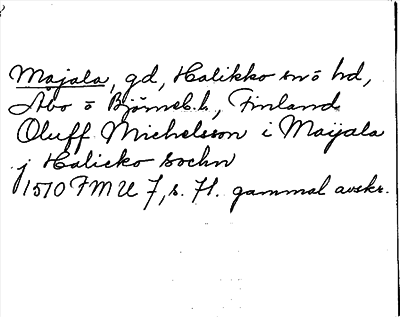 Majala, gd, Halikko sn o hd,
Åbo o Björneb. l., Finland
Oluff Michelsson i Maijala
j Halicko sochn
1510 FMU 7, s. 71. gammal avskr.